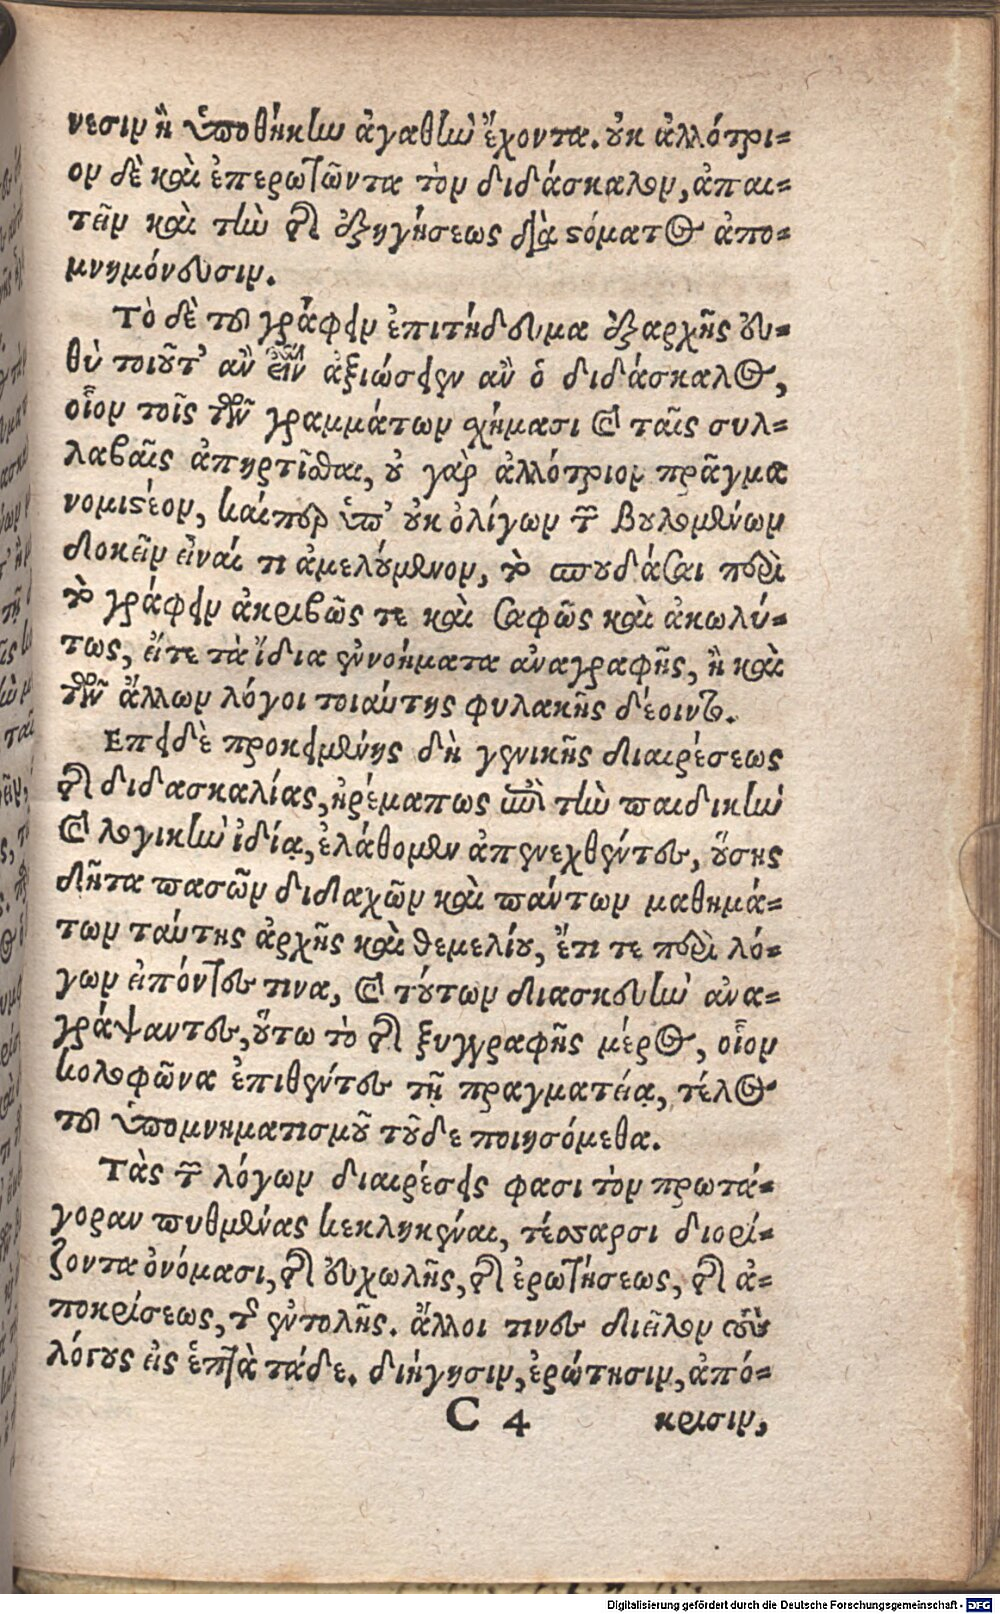 νεσιν ἢ ὑποθήκην ἀγαθὴν ἔχοντα. οὐκ ἀλλότρι-
ον δὲ καὶ ἐπερωτῶντα τὸν διδάσκαλον, ἀπαι-
τεῖν καὶ τὴν τῆς ἐξηγήσεως διὰ στόματος ἀπο-
μνημόνευσιν.
Τὸ δὲ τοῦ γράφειν ἐπιτήδευμα ἐξαρχῆς εὐ-
θὺ τοιοῦτ' ἂν εἶναι ἀξιώσειεν ἂν ὁ διδάσκαλος,
οἷον τοῖς τῶν γραμμάτων χήμασι καὶ ταῖς συλ-
λαβαῖς ἀπηρτῖσθαι, οὐ γὰρ ἀλλότριον πρᾶγμα
νομιστέον, καίπερ ὑπ' οὐκ ὀλίγων τῶν βουλομένων
δοκεῖν εἶναί τι ἀμελούμενον, τὸ σπουδάσαι περὶ
τὸ γράφειν ἀκριβῶς τε καὶ σαφῶς καὶ ἀκωλύ-
τως, εἴτε τὰ ἴδια ἐννοήματα ἀναγραφῆς, ἢ καὶ
τῶν ἄλλων λόγοι τοιαύτης φυλακῆς δέοιντο.
Επειδὲ προκειμένης δὴ γενικῆς διαιρέσεως
τῆς διδασκαλίας, ἠρέμαπως ἐπὶ τὴν παιδικὴν
καὶ λογικὴν ἰδίᾳ, ἐλάθομεν ἀπενεχθέντες, οὔσης
δῆτα πασῶν διδαχῶν καὶ πάντων μαθημά-
των ταύτης ἀρχῆς καὶ θεμελίου, ἔτι τε περὶ λό-
γων εἰπόντες τινα, καὶ τούτων διασκευὴν ἀνα-
γράψαντες, οὕτω τὸ τῆς ξυγγραφῆς μέρος, οἷον
κολοφῶνα ἐπιθέντες τῇ πραγματείᾳ, τέλος
τοῦ ὑπομνηματισμοῦ τοῦδε ποιησόμεθα.
Τὰς τῶν λόγων διαιρέσεις φασι τὸν πρωτά-
γοραν πυθμένας κεκληκέναι, τέσσαρσι διορί-
ζοντα ὀνόμασι, τῆς εὐχωλῆς, τῆς ἐρωτήσεως, τῆς ἀ-
ποκρίσεως, τῆς ἐντολῆς. ἄλλοι τινες διεῖλον τοὺς
λόγους εἰς ἑπτὰ τάδε. διήγησιν, ἐρώτησιν, ἀπό-
C 4 κρισιν,
Digitalisierung gefördert durch die Deutsche Forschungsgemeinschaft - DFG